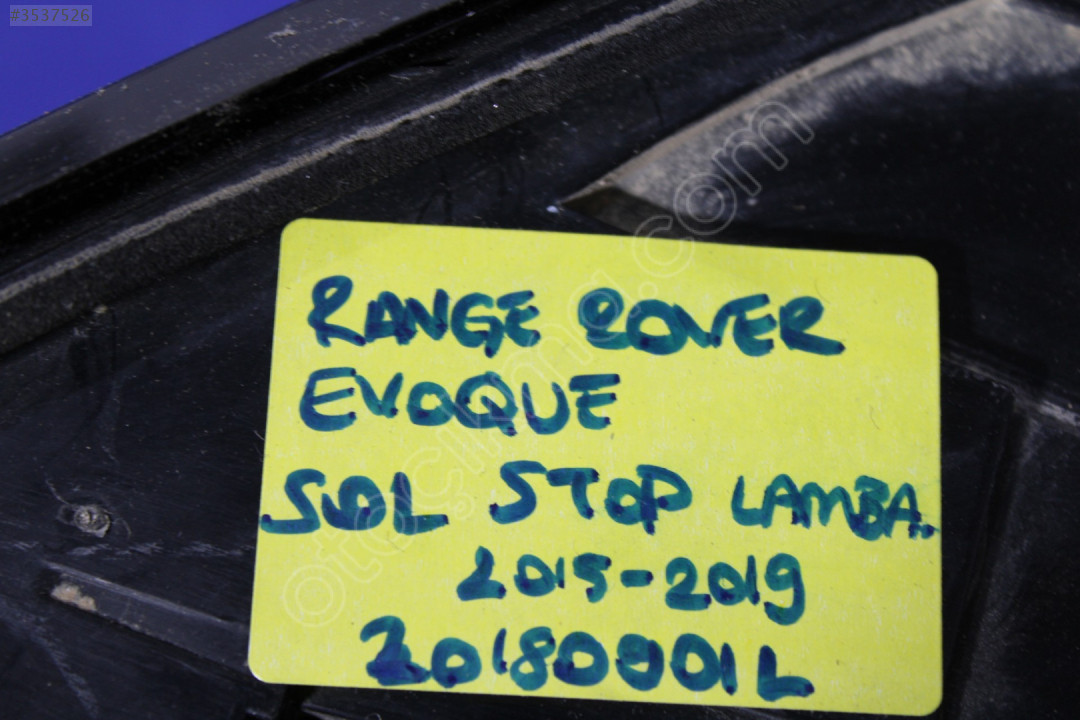 #3537526
RANGE ROVER
EVOQUE
SOL STOP LAMBA.
2015-2019
20180001L